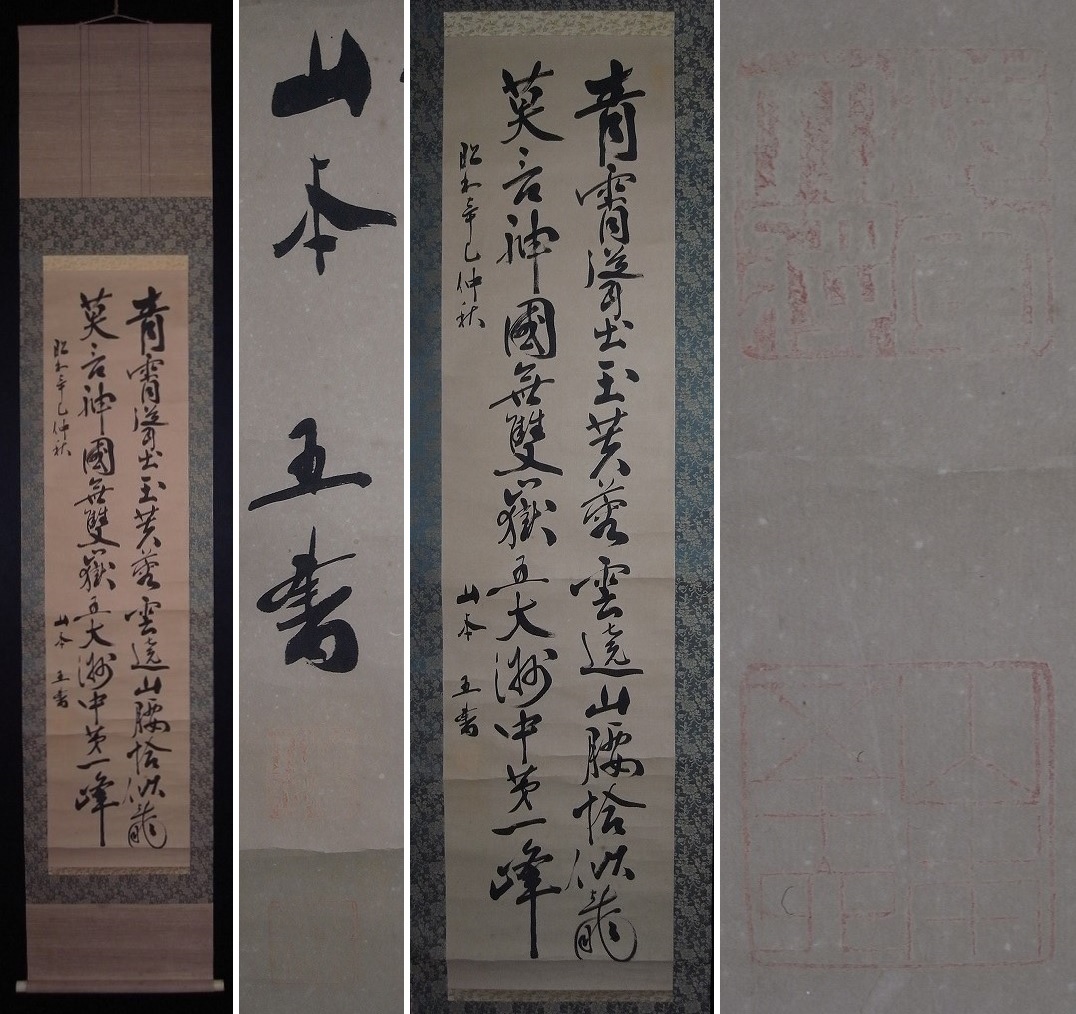 青霄聳出玉芙蓉雲遶山腰恰似龍
莫言神國無雙嶽五大洲中第一峰
昭和辛巳仲秋
山本 五書
山本 五書
青霄聳出玉芙蓉雲遶山腰恰似龍
莫言神國無雙嶽五大洲中第一峰
昭和辛巳仲秋
山本 五書